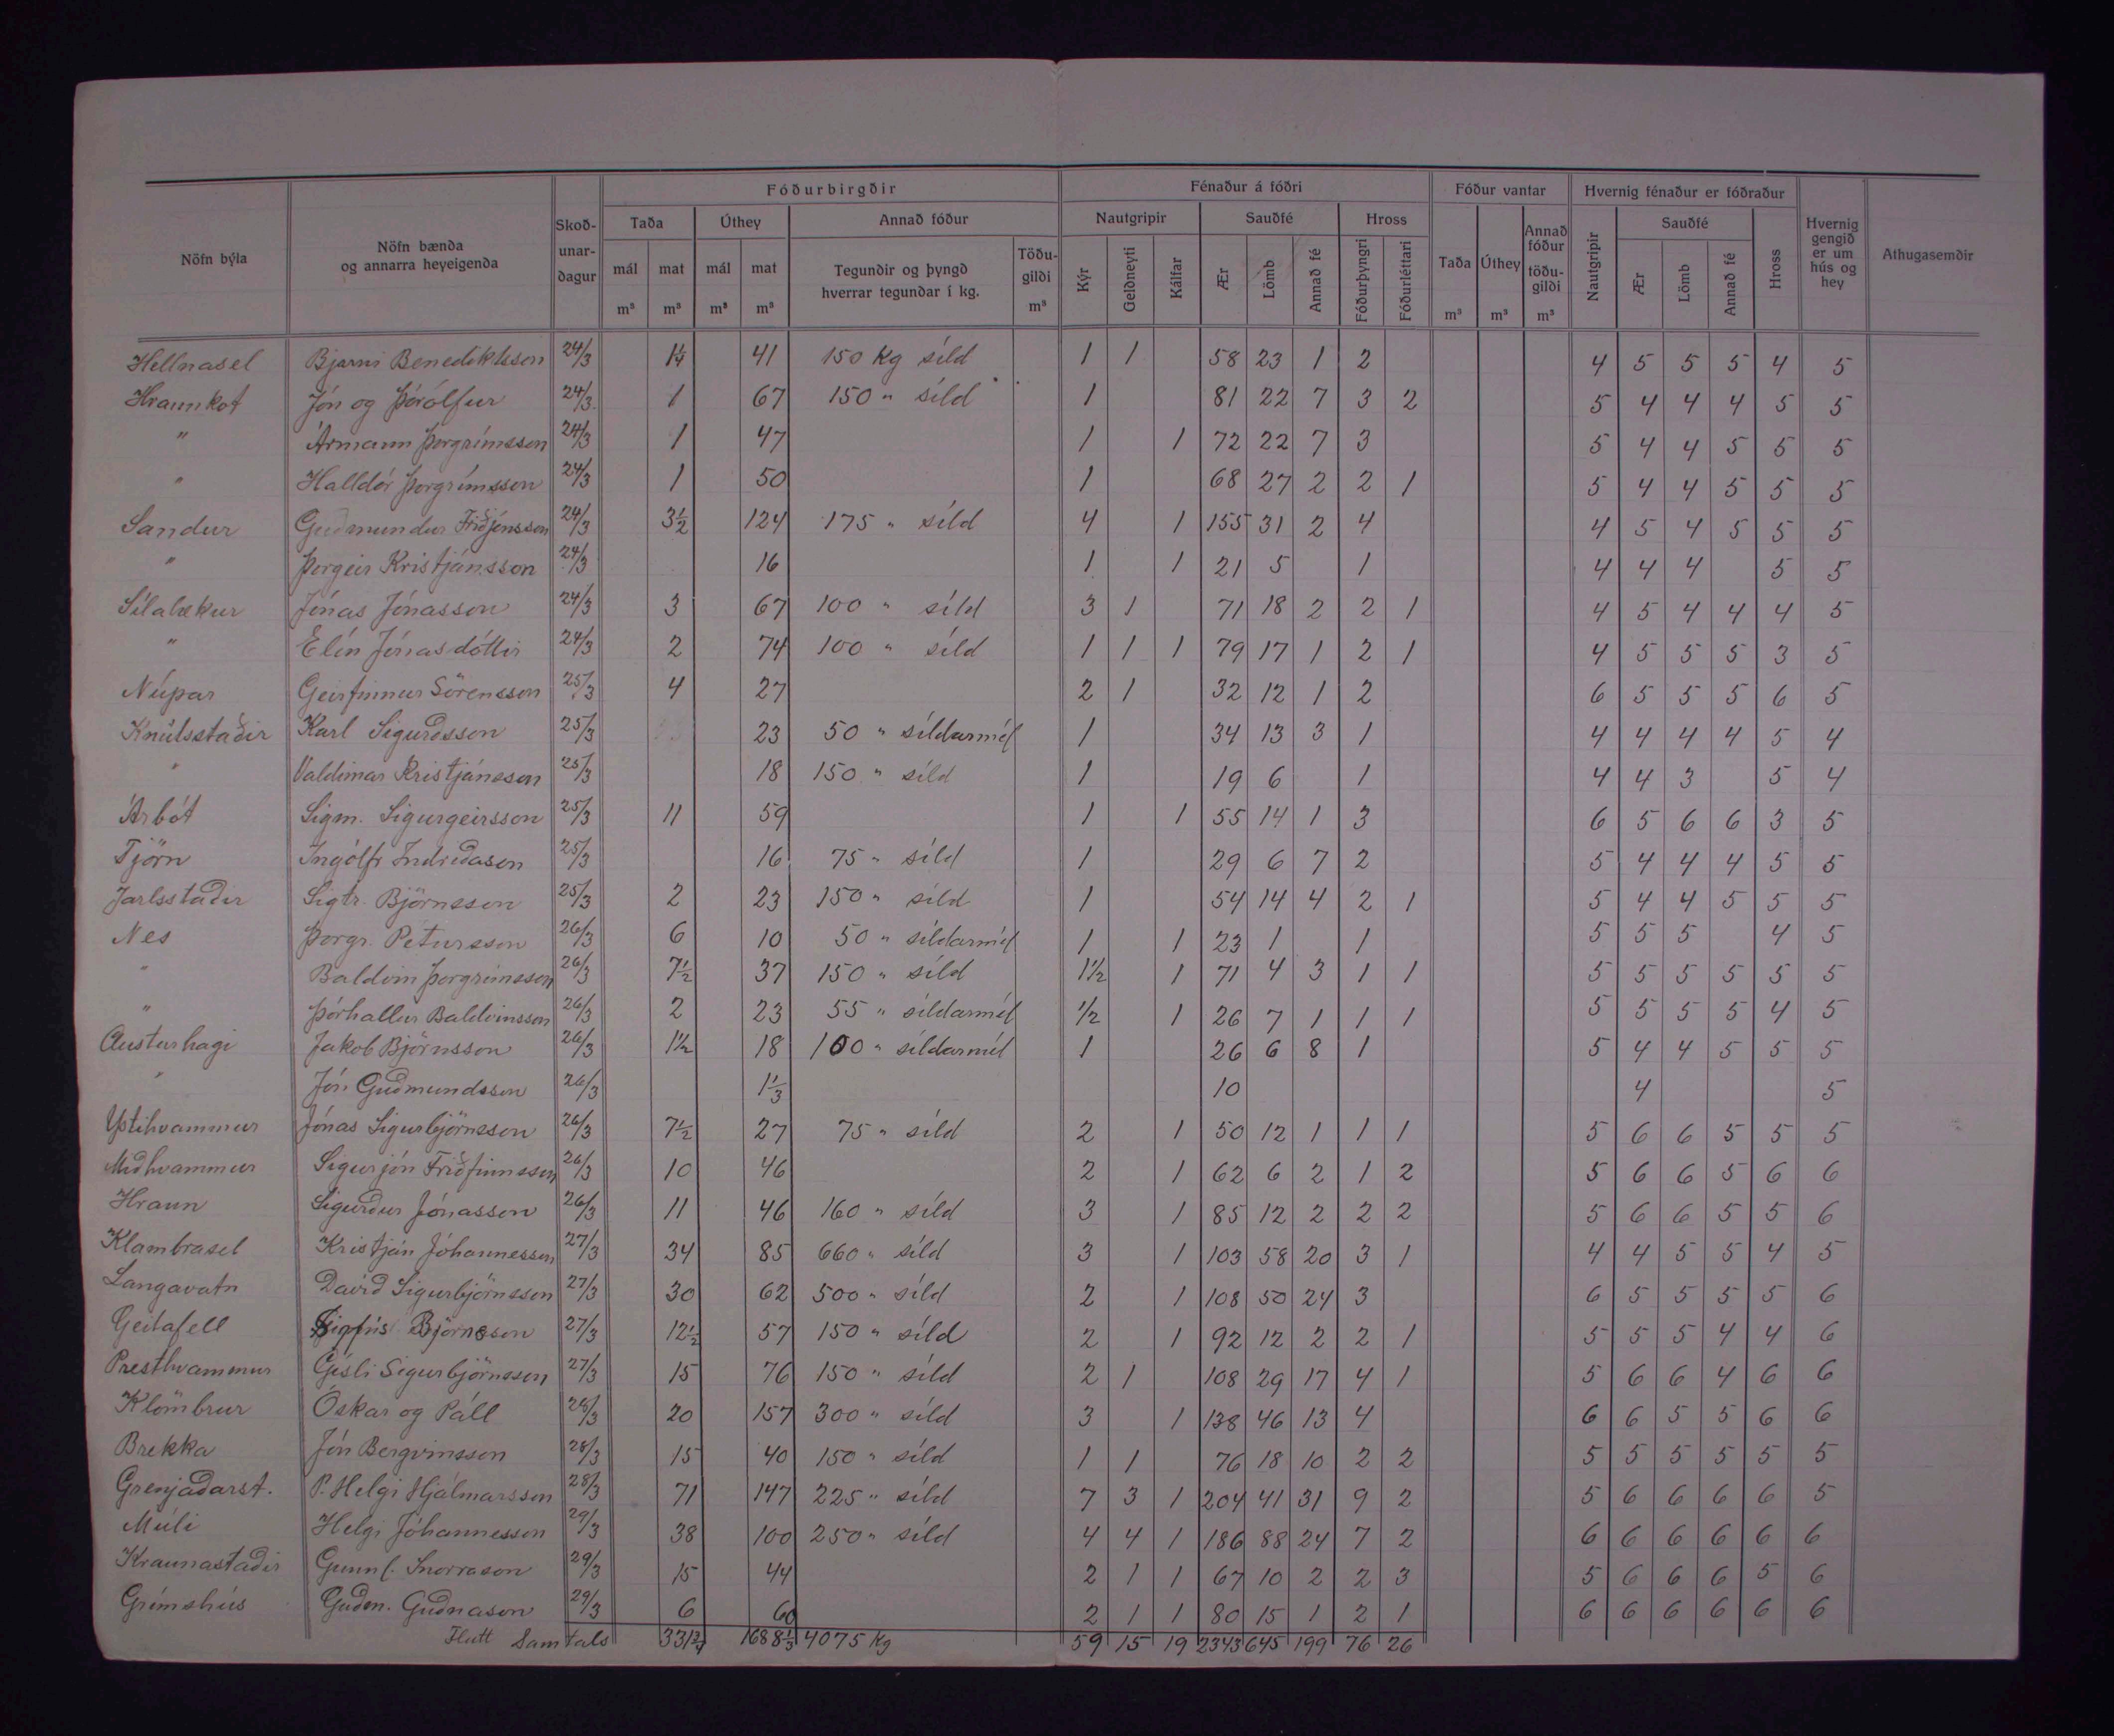 Fóðurbirgðir Fénaður á fóðri Fóður vantar Hvernig fénaður er fóðraður
Nöfn býla Nöfn bænda og annarra heyeigenda Skoðunardagur Taða Úthey Annað fóður Nautgripir Sauðfé Hross Taða Úthey Annað fóður töðugildi Nautgripir Sauðfé Hross Hvernig gengið er um hús og hey Athugasemdir
mál mat mál mat Tegundir og þyngd hverrar tegundar í kg. Töðugildi Kýr Geldneyti Kálfar Ær Lömb Annað fé Fóðurþyngri Fóðurléttari Ær Lömb Annað fé
m³ m³ m³ m³ m³ m³ m³ m³
Hellnasel Bjarni Benediktsson 24/3 1¼ 41 150 kg síld 1 1 58 23 1 2 4 5 5 5 4 5
Hraunkot Jón og Þórólfur 24/3 1 67 150 " síld 1 81 22 7 3 2 5 4 4 4 5 5
" Ármann Þorgrímsson 24/3 1 47 1 1 72 22 7 3 5 4 4 5 5 5
" Halldór Þorgrímsson 24/3 1 50 1 68 27 2 2 1 5 4 4 5 5 5
Sandur Guðmundur Friðjónsson 24/3 3½ 124 175 " síld 4 1 155 31 2 4 4 5 4 5 5 5
" Þorgeir Kristjánsson 24/3 16 1 1 21 5 1 4 4 4 5 5
Sílalækur Jónas Jónasson 24/3 3 67 100 " síld 3 1 71 18 2 2 1 4 5 4 4 4 5
" Elín Jónasdóttir 24/3 2 74 100 " síld 1 1 1 79 17 1 2 1 4 5 5 5 3 5
Núpar Geirfinnur Sörensson 25/3 4 27 2 1 32 12 1 2 6 5 5 5 6 5
Knútsstaðir Karl Sigurðsson 25/3 23 50 " síldarmél 1 34 13 3 1 4 4 4 4 5 4
" Valdimar Kristjánsson 25/3 18 150 " síld 1 19 6 1 4 4 3 5 4
Árbót Sigm. Sigurgeirsson 25/3 11 59 1 1 55 14 1 3 6 5 6 6 3 5
Tjörn Ingólfr Indriðason 25/3 16 75 " síld 1 29 6 7 2 5 4 4 4 5 5
Jarlsstaðir Sigtr. Björnsson 25/3 2 23 150 " síld 1 54 14 4 2 1 5 4 4 5 5 5
Nes Þorgr. Pétursson 26/3 6 10 50 " síldarmél 1 1 23 1 1 5 5 5 4 5
" Baldvin Þorgrímsson 26/3 7½ 37 150 " síld 1½ 1 71 4 3 1 1 5 5 5 5 5 5
" Þórhallur Baldvinsson 26/3 2 23 55 " síldarmél ½ 1 26 7 1 1 1 5 5 5 5 4 5
Austurhagi Jakob Björnsson 26/3 1½ 18 100 " síldarmél 1 26 6 8 1 5 4 4 5 5 5
" Jón Guðmundsson 26/3 1⅓ 10 4 5
Ystihvammur Jónas Sigurbjörnsson 26/3 7½ 27 75 " síld 2 1 50 12 1 1 1 5 6 6 5 5 5
Miðhvammur Sigurjón Friðfinnsson 26/3 10 46 2 1 62 6 2 1 2 5 6 6 5 6 6
Hraun Sigurður Jónasson 26/3 11 46 160 " síld 3 1 85 12 2 2 2 5 6 6 5 5 6
Klambrasel Kristján Jóhannesson 27/3 34 85 660 " síld 3 1 103 58 20 3 1 4 4 5 5 4 5
Langavatn Davíð Sigurbjörnsson 27/3 30 62 500 " síld 2 1 108 50 24 3 6 5 5 5 5 6
Geitafell Sigfús Björnsson 27/3 12½ 57 150 " síld 2 1 92 12 2 2 1 5 5 5 4 4 6
Presthvammur Gísli Sigurbjörnsson 27/3 15 76 150 " síld 2 1 108 29 17 4 1 5 6 6 4 6 6
Klömbrur Óskar og Páll 28/3 20 157 300 " síld 3 1 138 46 13 4 6 6 5 5 6 6
Brekka Jón Bergvinsson 28/3 15 40 150 " síld 1 1 76 18 10 2 2 5 5 5 5 5 5
Grenjaðarst. P. Helgi Hjálmarsson 28/3 71 147 225 " síld 7 3 1 204 41 31 9 2 5 6 6 6 6 5
Múli Helgi Jóhannesson 29/3 38 100 250 " síld 4 4 1 186 88 24 7 2 6 6 6 6 6 6
Kraunastaðir Gunnl. Snorrason 29/3 15 44 2 1 1 67 10 2 2 3 5 6 6 6 5 6
Grímshús Guðm. Guðnason 29/3 6 60 2 1 1 80 15 1 2 1 6 6 6 6 6 6
Flutt Samtals 331¾ 1688⅓ 4075 kg 59 15 19 2343 645 199 76 26